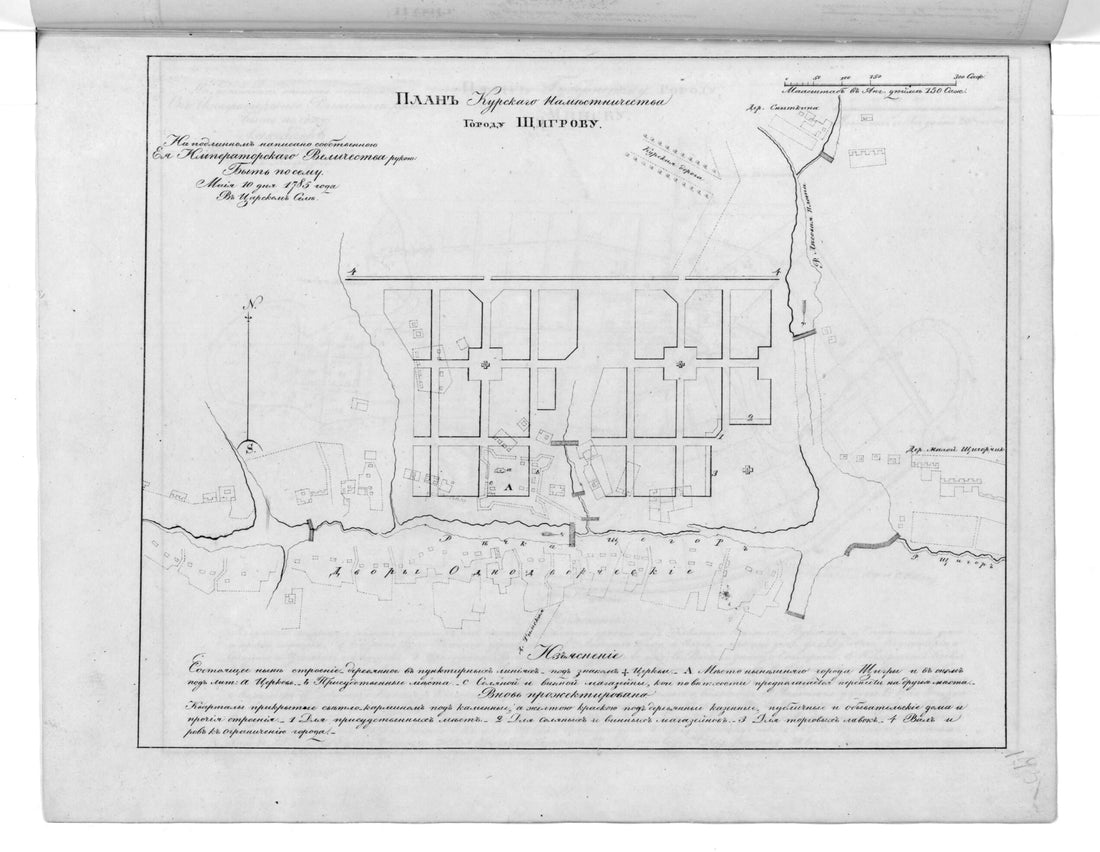 ПЛАНЪ Курскаго Намѣстничества
Городу ЩИГРОВУ.
0 50 100 150 300 Саж.
Масштабъ въ Анг. дюймѣ 150 Саж.
На подлинномъ написано собственною
Ея Императорскаго Величества рукою:
Быть по сему.
Маія 10 дня 1785 года
Въ Царскомъ Селѣ.
Дер. Сниткина
Курская дорога
Р. Лисочка Плота
4 4
N
S
2
1
3
A
Дер. Малой Щигорчик
Рѣчка Щегоръ
Р. Щигоръ
Дворы Однодворческіе
Изъясненіе
Состоящее нынѣ строеніе деревянное въ пунктирныхъ линіяхъ - подъ знакомъ ‡ Церквы - А Мѣсто нынѣшняго города Щигры и въ ономъ
подъ лит: а Церковь - b Присутственные мѣста - с Соляной и винной магазейны, кои по ветхости предполагается перевести на другія мѣста.
Вновь прожектировано
Кварталы прикрытые свѣтло-карминомъ подъ каменные, а желтою краскою подъ деревянные казенные, публичные и обывательскіе домы и
прочія строенія - 1 Для присудственныхъ мѣстъ - 2 Для соляныхъ и винныхъ магазейновъ - 3 Для торговыхъ лавокъ - 4 Валъ и
ровъ къ ограниченію города -